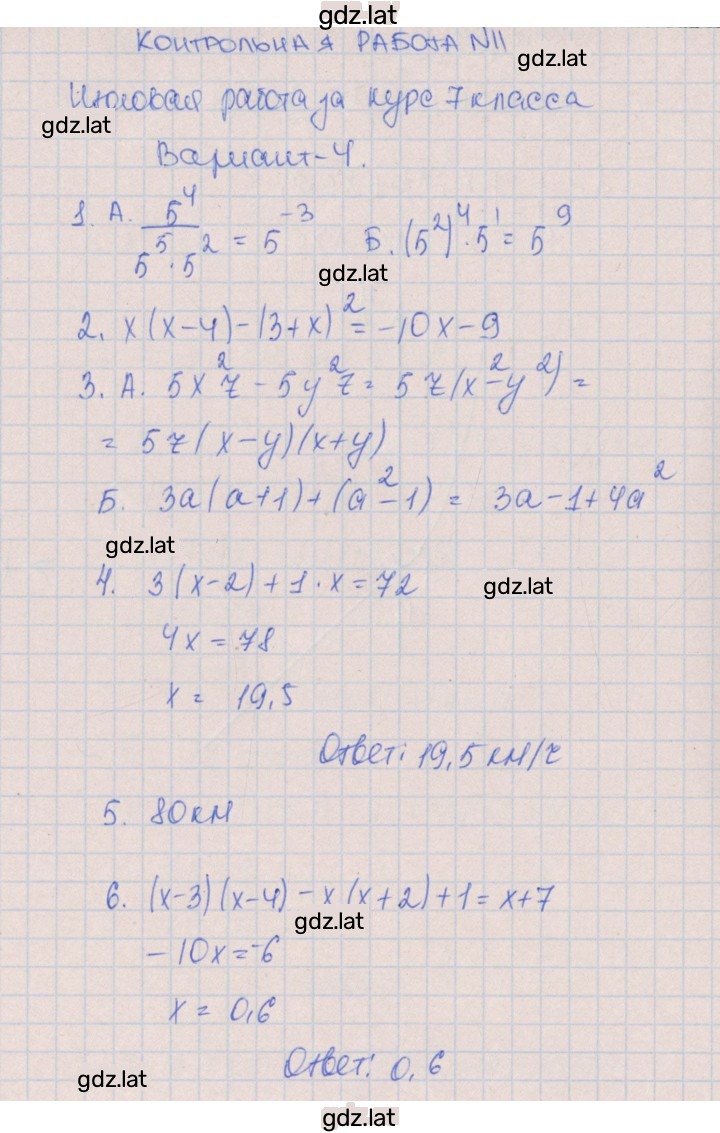 gdz.lat
КОНТРОЛЬНАЯ РАБОТА N11
gdz.lat
Итоговая работа за курс 7 класса
gdz.lat
Вариант-4.
1. А. 5⁴/(5⁵·5²) = 5⁻³ Б. (5²)⁴·5¹ = 5⁹
gdz.lat
2. x(x-4)-(3+x)² = -10x-9
3. А. 5x²z - 5y²z = 5z(x²-y²) =
= 5z(x-y)(x+y)
Б. 3a(a+1)+(a²-1) = 3a-1+4a²
gdz.lat
4. 3(x-2)+1·x=72
gdz.lat
4x = 78
x = 19,5
Ответ: 19,5 км/ч
5. 80км
6. (x-3)(x-4)-x(x+2)+1= x+7
gdz.lat
-10x=-6
x = 0,6
Ответ: 0,6
gdz.lat
gdz.lat